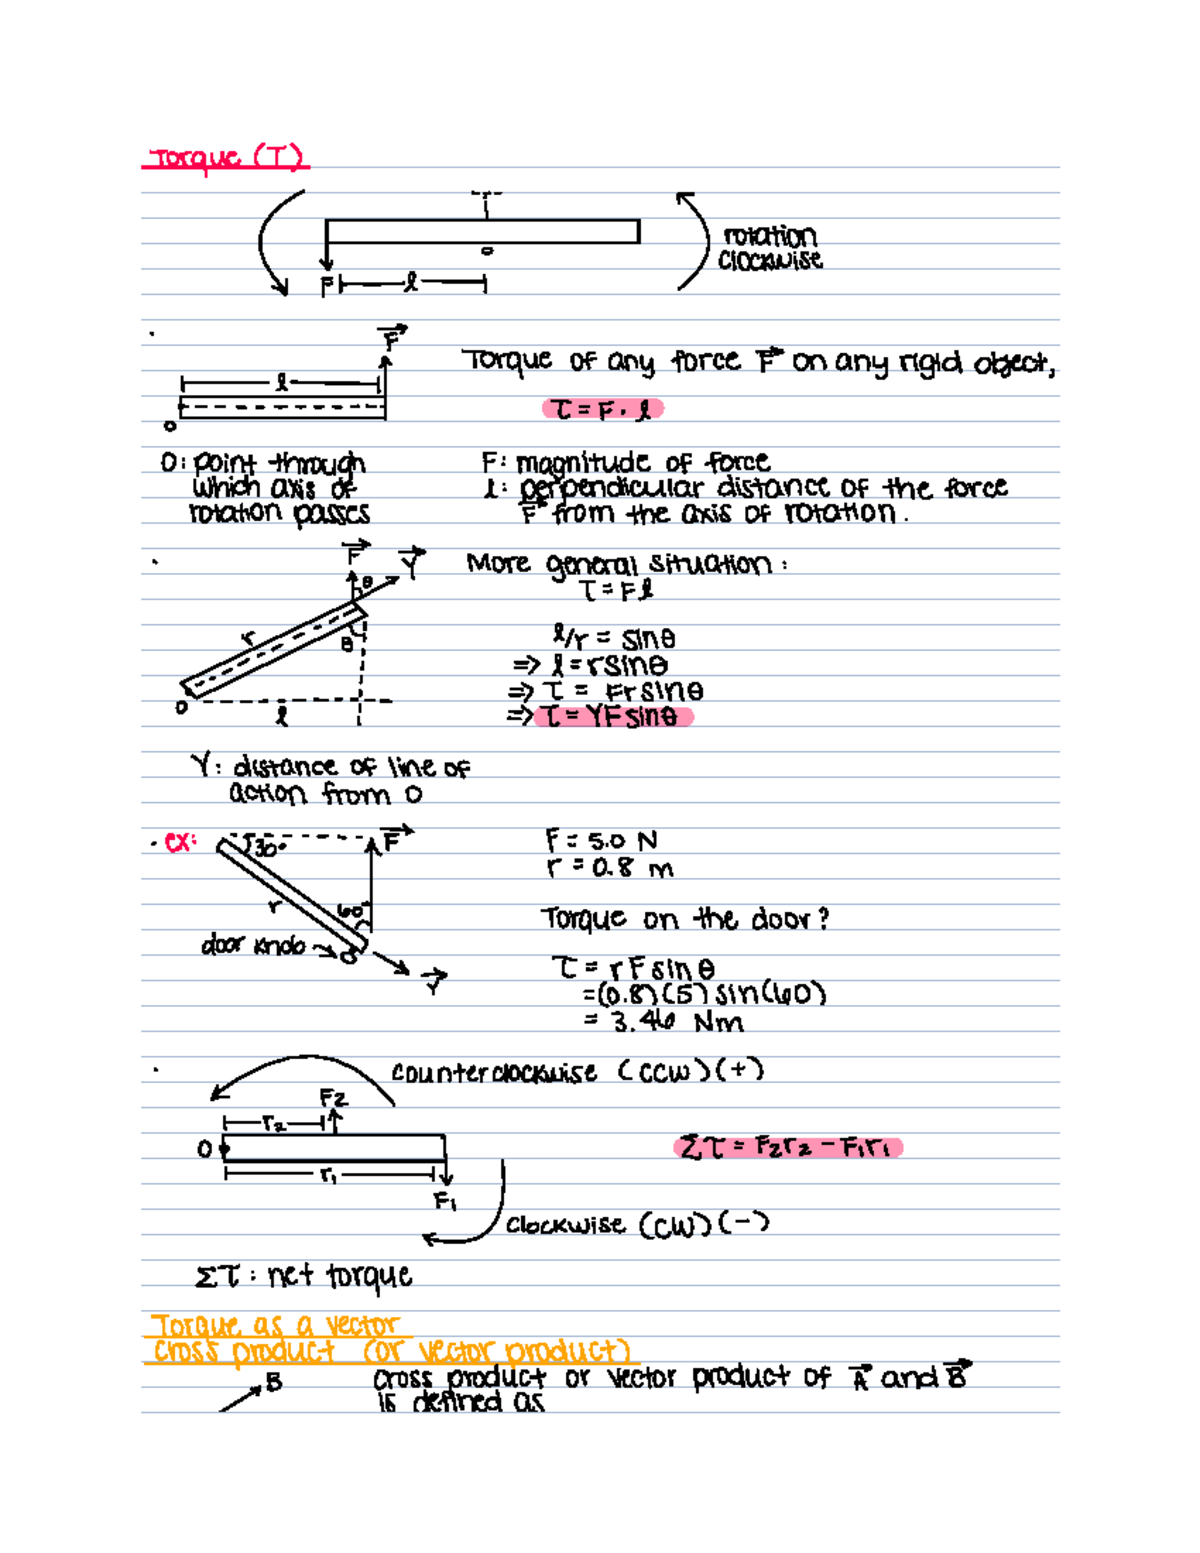 Torque (T)
rotation
clockwise
o
F
l
F
l
Torque of any force F on any rigid object,
τ = F · l
o
O: point through
which axis of
rotation passes
F: magnitude of force
l: perpendicular distance of the force
F from the axis of rotation.
F
Y
θ
More general situation:
τ = Fl
r
θ
l/r = sinθ
=> l = rsinθ
o
l
=> τ = Frsinθ
=> τ = YFsinθ
Y: distance of line of
action from O
ex:
30°
F
F = 5.0 N
r = 0.8 m
r
60°
Torque on the door?
door knob
r
τ = rFsinθ
= (0.8)(5)sin(60)
= 3.46 Nm
counterclockwise (CCW)(+)
F2
r2
O
Στ = F2r2 - F1r1
r1
F1
clockwise (CW)(-)
Στ: net torque
Torque as a vector
cross product (or vector product)
B
cross product or vector product of A and B
is defined as